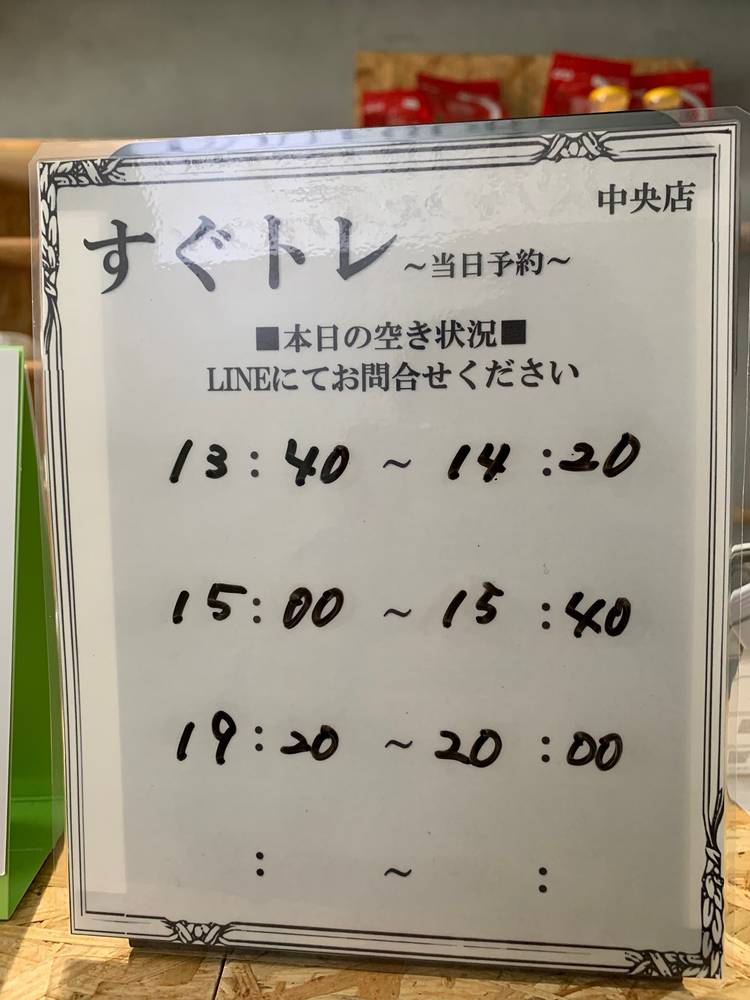 中央店
すぐトレ ～当日予約～
■本日の空き状況■
LINEにてお問合せください
13:40 ～ 14:20
15:00 ～ 15:40
19:20 ～ 20:00
: ～ :